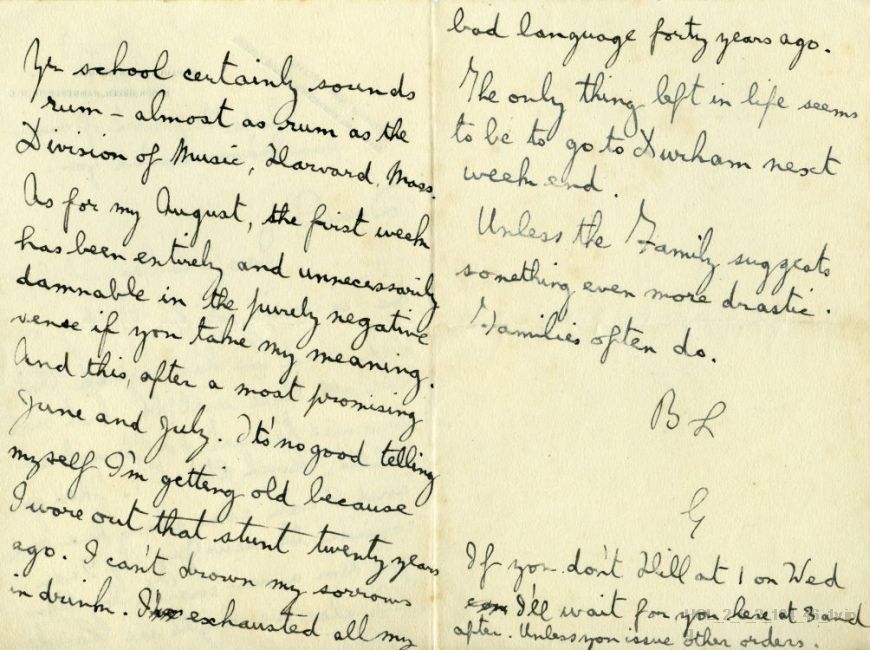 Yr school certainly sounds
rum – almost as rum as the
Division of Music, Harvard, Mass.
As for my August, the first week
has been entirely and unnecessarily
damnable in the purely negative
sense if you take my meaning.
And this, after a most promising
June and July. It's no good telling
myself I'm getting old because
I wore out that stunt twenty years
ago. I can't drown my sorrows
in drink. I've exhausted all my
bad language forty years ago.
The only thing left in life seems
to be to go to Durham next
week end.
Unless the Family suggests
something even more drastic.
Families often do.
B L
G
If you don't Hill at 1 on Wed
I'll wait for you here at 3 and
after. Unless you issue other orders.